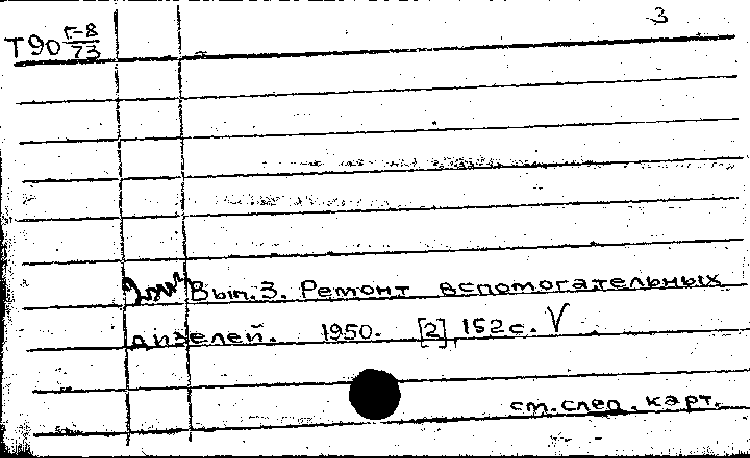 3
Т90 Г-8/73
Вып. 3. Ремонт вспомогательных
дизелей. 1950. [2], 152 с. V
см. след. карт.